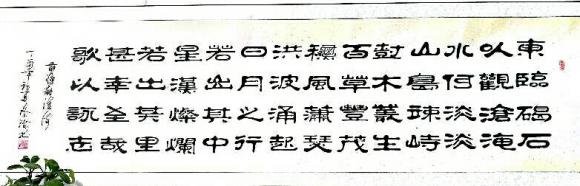 東臨碣石
以觀滄海
水何淡淡
山島竦峙
樹木叢生
百草豐茂
秋風蕭瑟
洪波涌起
日月之行
若出其中
星漢燦爛
若出其里
甚幸至哉
歌以詠志
曹操觀滄海
丁酉年